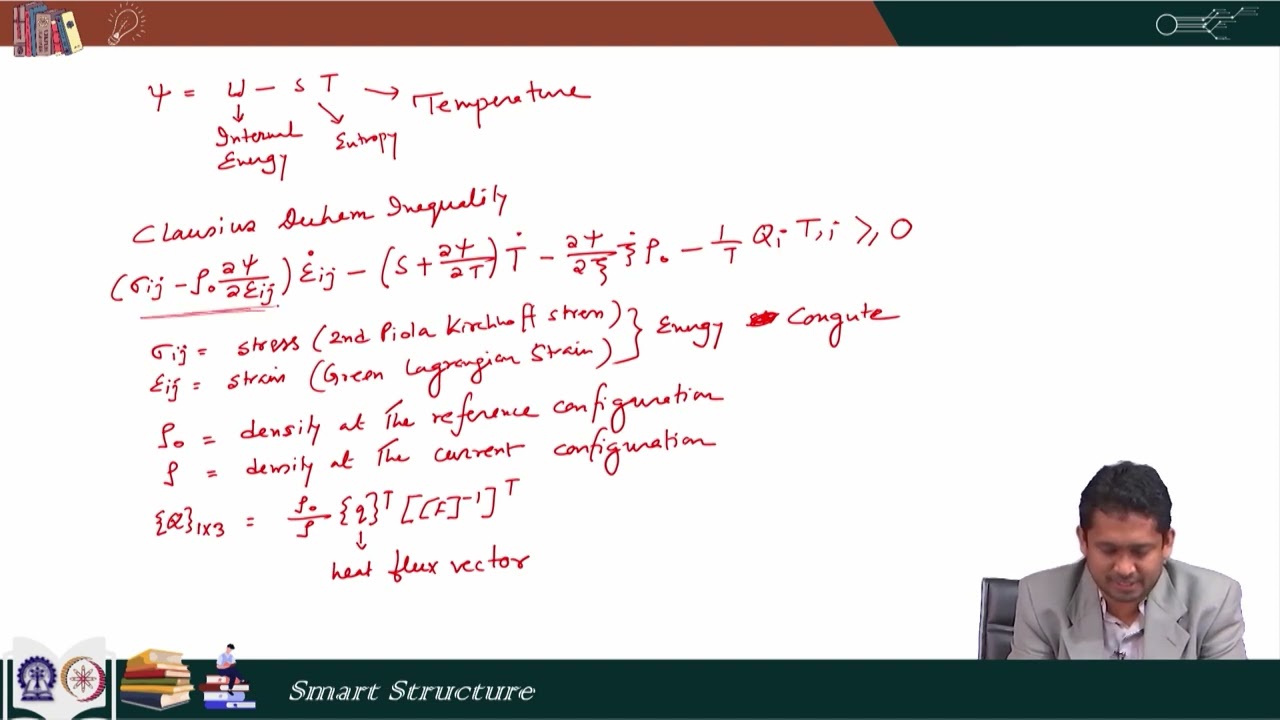 ψ = U − S T → Temperature
Internal Energy
Entropy
Clausius Duhem Inequality
(σij − ρ₀ ∂ψ/∂εij) ε̇ij − (S + ∂ψ/∂T) Ṫ − ∂ψ/∂ξ ξ̇ ρ₀ − 1/T Qi T,i ≥ 0
σij = stress (2nd Piola Kirchhoff stress) } Energy Congute
εij = strain (Green Lagrangian Strain)
ρ₀ = density at The reference configuration
ρ = density at The current configuration
{Q}1x3 = ρ₀/ρ {q}ᵀ [[F]⁻¹]ᵀ
heat flux vector
Smart Structure